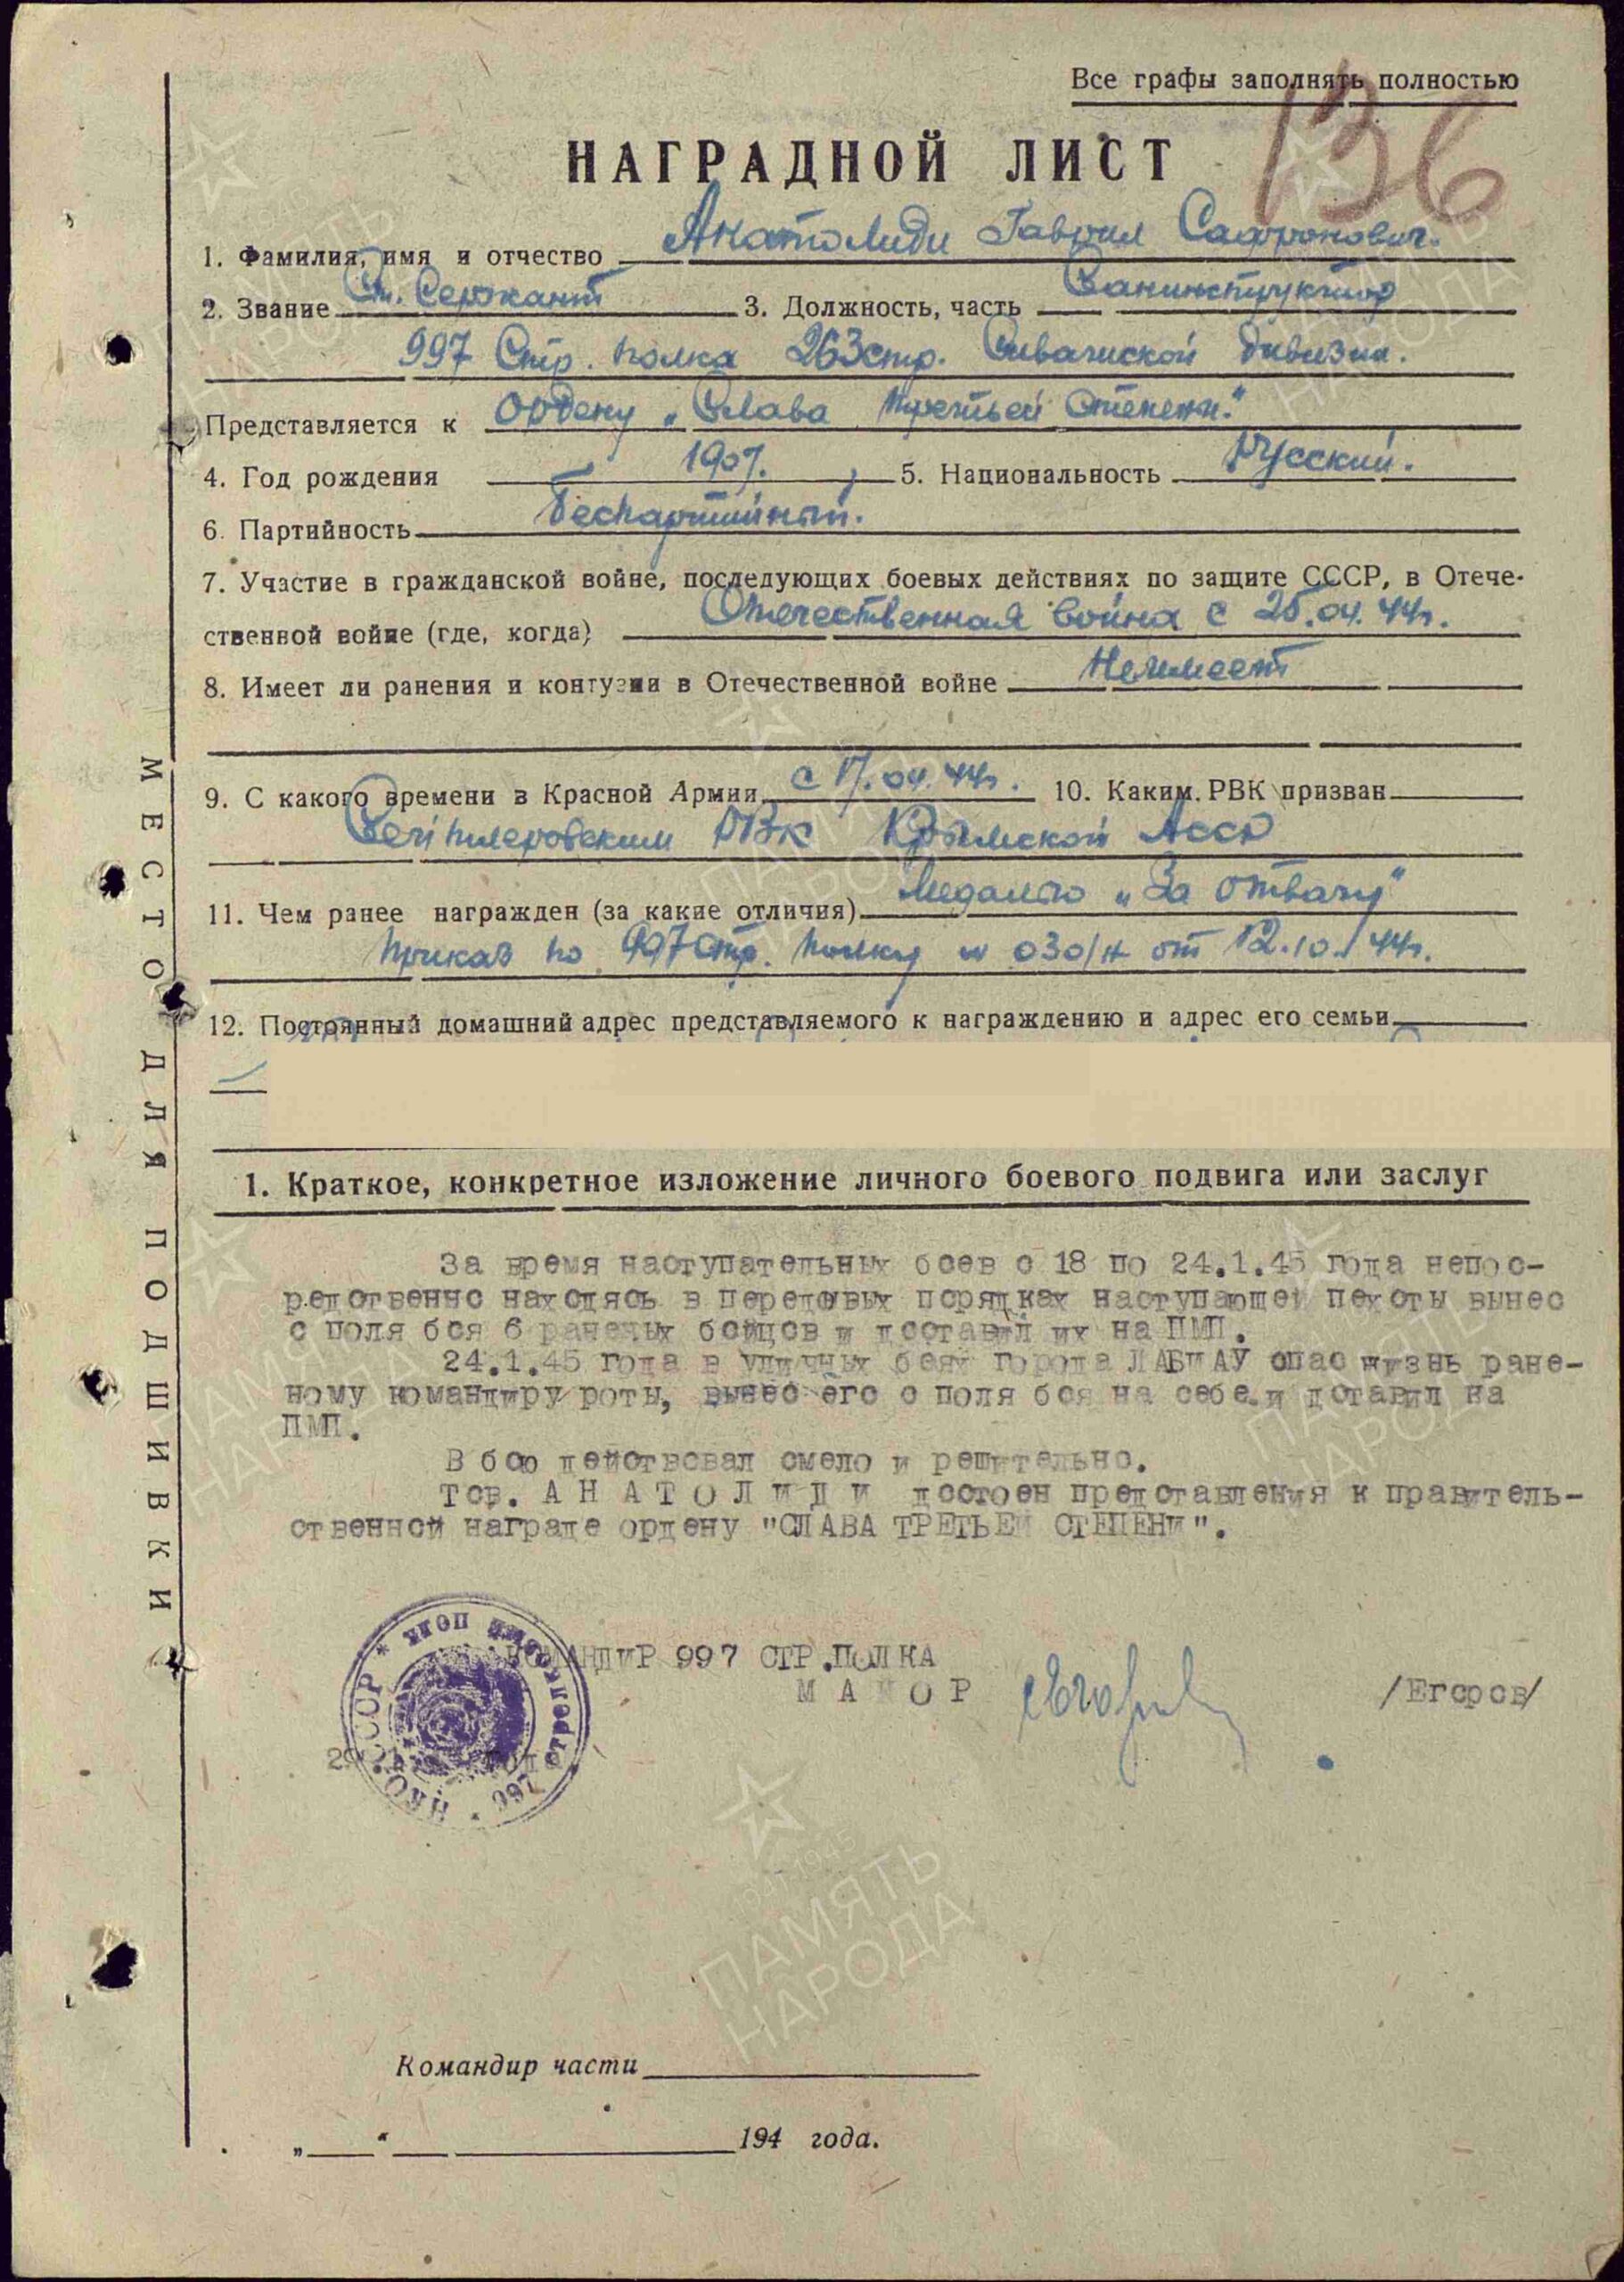 Все графы заполнять полностью
136
НАГРАДНОЙ ЛИСТ
1. Фамилия, имя и отчество Анатолиди Гавриил Сафронович.
2. Звание Ст. Сержант 3. Должность, часть Санинструктор
997 Стр. полка 263 стр. Сивашской дивизии.
Представляется к Ордену „Слава третьей степени."
4. Год рождения 1907. 5. Национальность Русский.
6. Партийность Беспартийный.
7. Участие в гражданской войне, последующих боевых действиях по защите СССР, в Отече-
ственной войне (где, когда) Отечественная война с 25.04.44г.
8. Имеет ли ранения и контузии в Отечественной войне Не имеет
9. С какого времени в Красной Армии с 17.04.44г. 10. Каким РВК призван
РВК Крымской АССР
11. Чем ранее награжден (за какие отличия) Медалью „За отвагу"
Приказ по 997 стр. полку № 030/н от 12.10.44г.
12. Постоянный домашний адрес представляемого к награждению и адрес его семьи
1. Краткое, конкретное изложение личного боевого подвига или заслуг
За время наступательных боев с 18 по 24.1.45 года непос-
редственно находясь в передовых порядках наступающей пехоты вынес
с поля боя 6 раненых бойцов и доставил их на ПМП.
24.1.45 года в уличных боях города ЛАБИАУ спас жизнь ране-
ному командиру роты, вынес его с поля боя на себе и дставил на
ПМП.
В бою действовал смело и решительно.
Тов. АНАТОЛИДИ достоен представления к правитель-
ственной награде ордену "СЛАВА ТРЕТЬЕЙ СТЕПЕНИ".
КОМАНДИР 997 СТР.ПОЛКА
МАЙОР Егоров /Егоров/
НКО СССР * 997 стрелковый полк *
Командир части
„ “ 194 года.
МЕСТО ДЛЯ ПОДШИВКИ
1941-1945
ПАМЯТЬ
НАРОДА